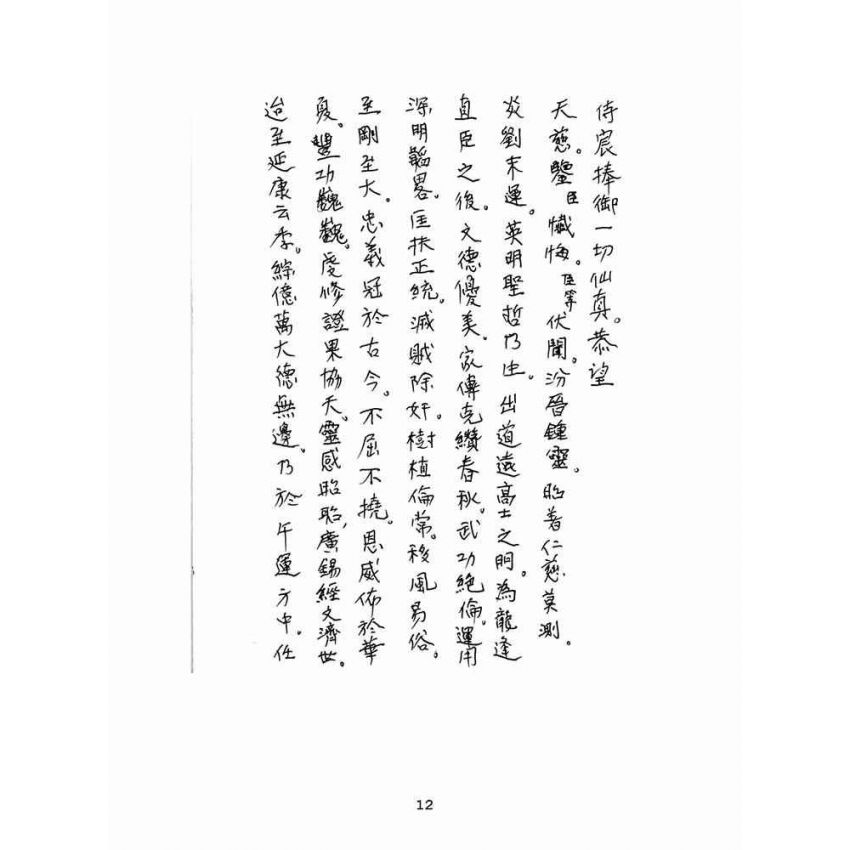 侍宸捧御一切仙真。恭望
天慈。鑒臣懺悔。臣等伏聞。汾晉鍾靈。昭著仁慈莫測。
炎劉末運。英明聖哲乃生。出道遠高士之門。為龍逢
直臣之後。文德優美。家傳克纘春秋。武功絶倫。運用
深明韜畧。匡扶正統。滅賊除奸。樹植倫常。移風易俗。
至剛至大。忠義冠於古今。不屈不撓。恩威佈於華
夏。豐功巍巍。受修證果協天。靈感昭昭,廣錫經文濟世。
迨至延康云季。綜億萬大德無邊。乃於午運方中。任
12